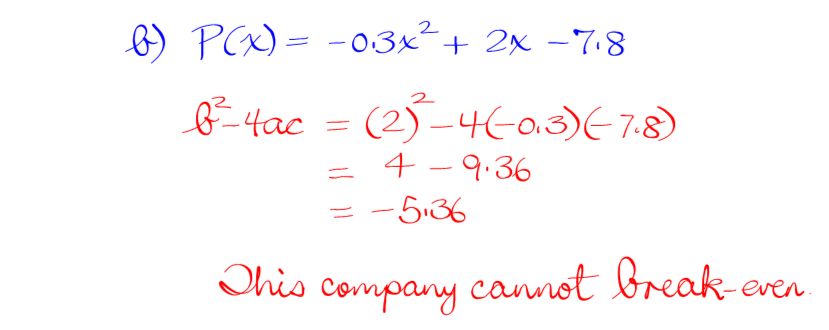 b) P(x) = -0.3x² + 2x - 7.8
b²-4ac = (2)² - 4(-0.3)(-7.8)
= 4 - 9.36
= -5.36
This company cannot break-even.